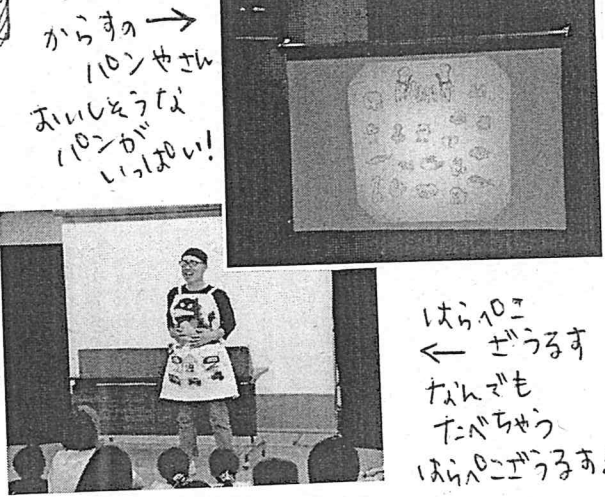 からすの →
パンやさん
おいしそうな
パンが
いっぱい!
はらぺこ
← ざうるす
なんでも
たべちゃう
はらぺこざうるす。